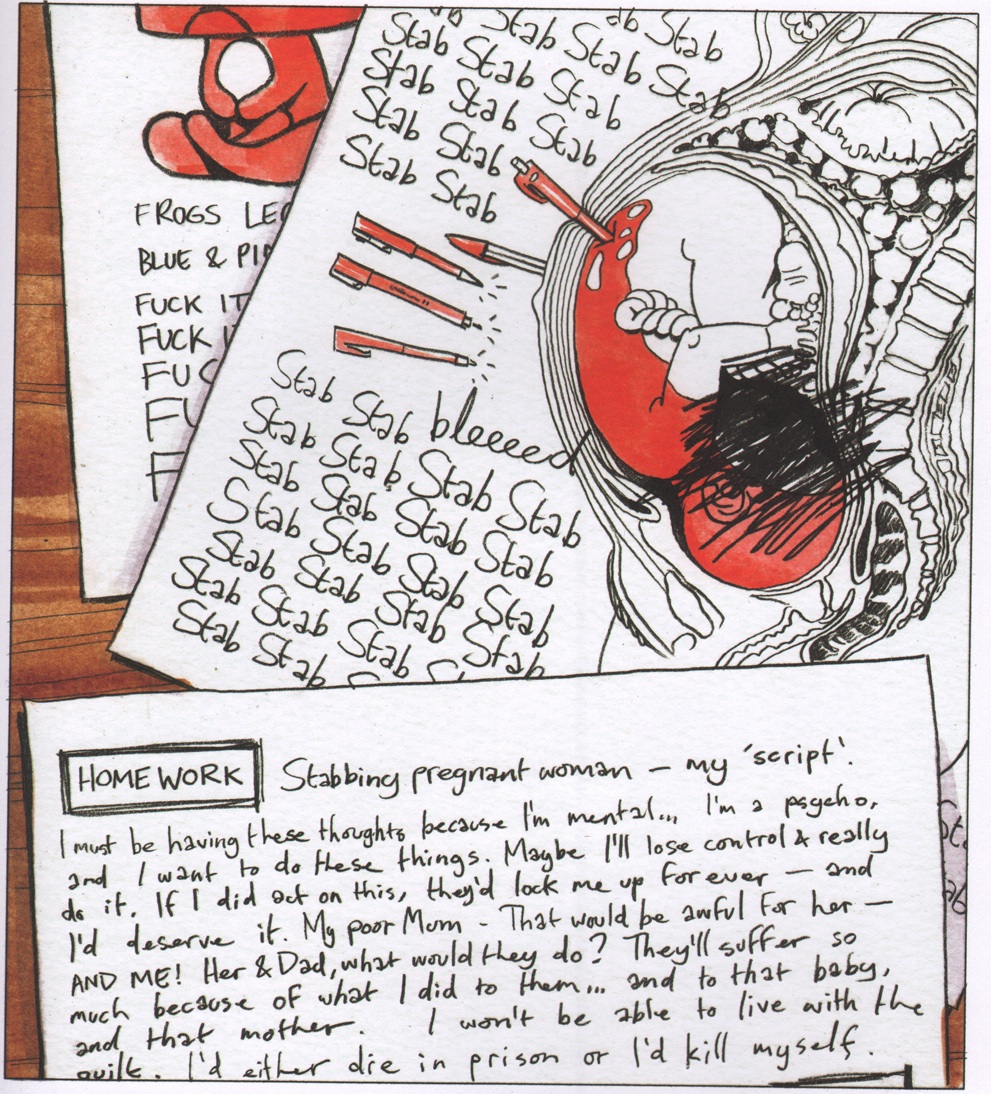 FROGS LE
BLUE & PI
FUCK IT
FUCK I
FUC
FU
F
Stab Stab Stab
Stab Stab Stab Stab
Stab Stab Stab
Stab Stab
Stab Stab
Stab
Stab Stab bleeeed
Stab Stab Stab Stab
Stab Stab Stab Stab
Stab Stab Stab Stab
Stab Stab Stab Stab
Stab Stab Stab Stab
Stab Stab Stab
HOMEWORK Stabbing pregnant woman – my 'script'.
I must be having these thoughts because I'm mental... I'm a psycho,
and I want to do these things. Maybe I'll lose control & really
do it. If I did act on this, they'd lock me up forever – and
I'd deserve it. My poor Mum - That would be awful for her –
AND ME! Her & Dad, what would they do? They'll suffer so
much because of what I did to them... and to that baby,
and that mother. I won't be able to live with the
guilt. I'd either die in prison or I'd kill myself.